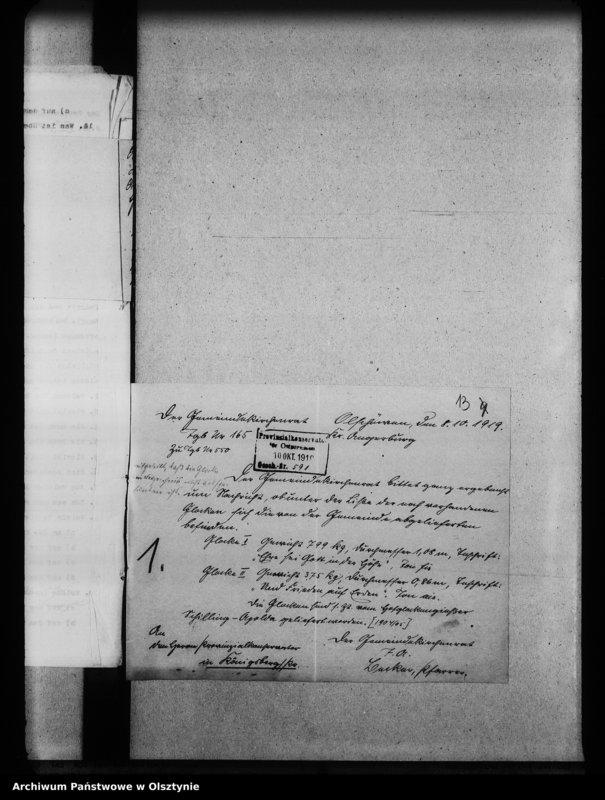 a) nur dem
12. Wem ist
13
Der Gemeindekirchenrat
Olschöwen, den 8.10.1919.
Tgb Nr 165
Kr. Angerburg
Zu Tgb Nr 550
Provinzialkonservator
für Ostpreussen
10 OKT. 1919
Gesch.-Nr. 591
mitgeteilt, daß die Glocke
Der Gemeindekirchenrat bittet ganz ergebenst
um Nachricht, ob unter der Liste der noch vorhandenen
Glocken sich die von der Gemeinde abgelieferten
befinden.
1.
Glocke I Gewicht 799 kg, Durchmesser 1,08 m, Inschrift:
"Ehre sei Gott in der Höhe". Ton fis
Glocke II Gewicht 375 kg, Durchmesser 0,86 m, Inschrift:
"Und Frieden auf Erden". Ton
Die Glocken sind s. Zt. vom Hofglockengießer
Schilling-Apolda geliefert worden. [1904/05]
An
den Herrn Provinzialkonservator
in Königsberg/Pr.
Der Gemeindekirchenrat
J. A.
Pfarrer.
Archiwum Państwowe w Olsztynie